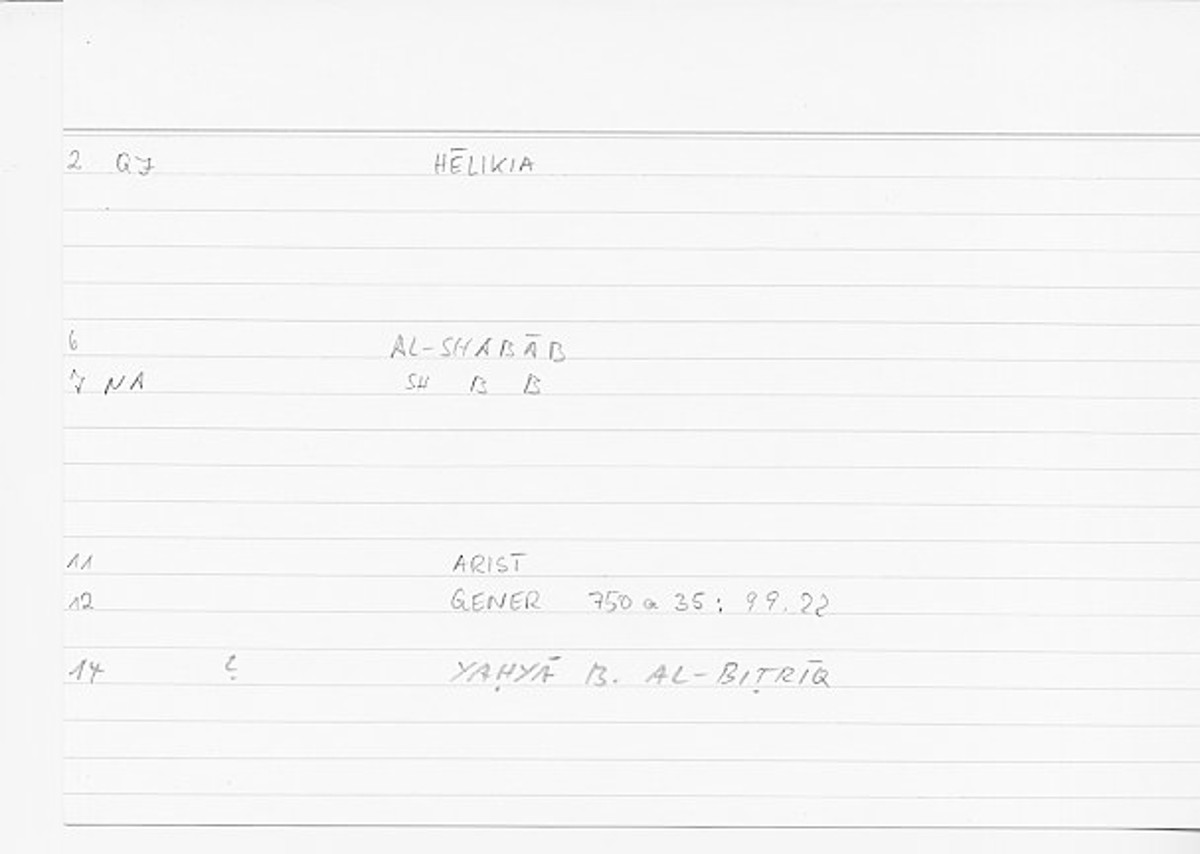 2 QJ HĒLIKIA
6 AL-SHABĀB
7 NA SH B B
11 ARIST
12 GENER 750 a 35 : 99.22
14 YAḤYĀ B. AL-BIṬRĪQ